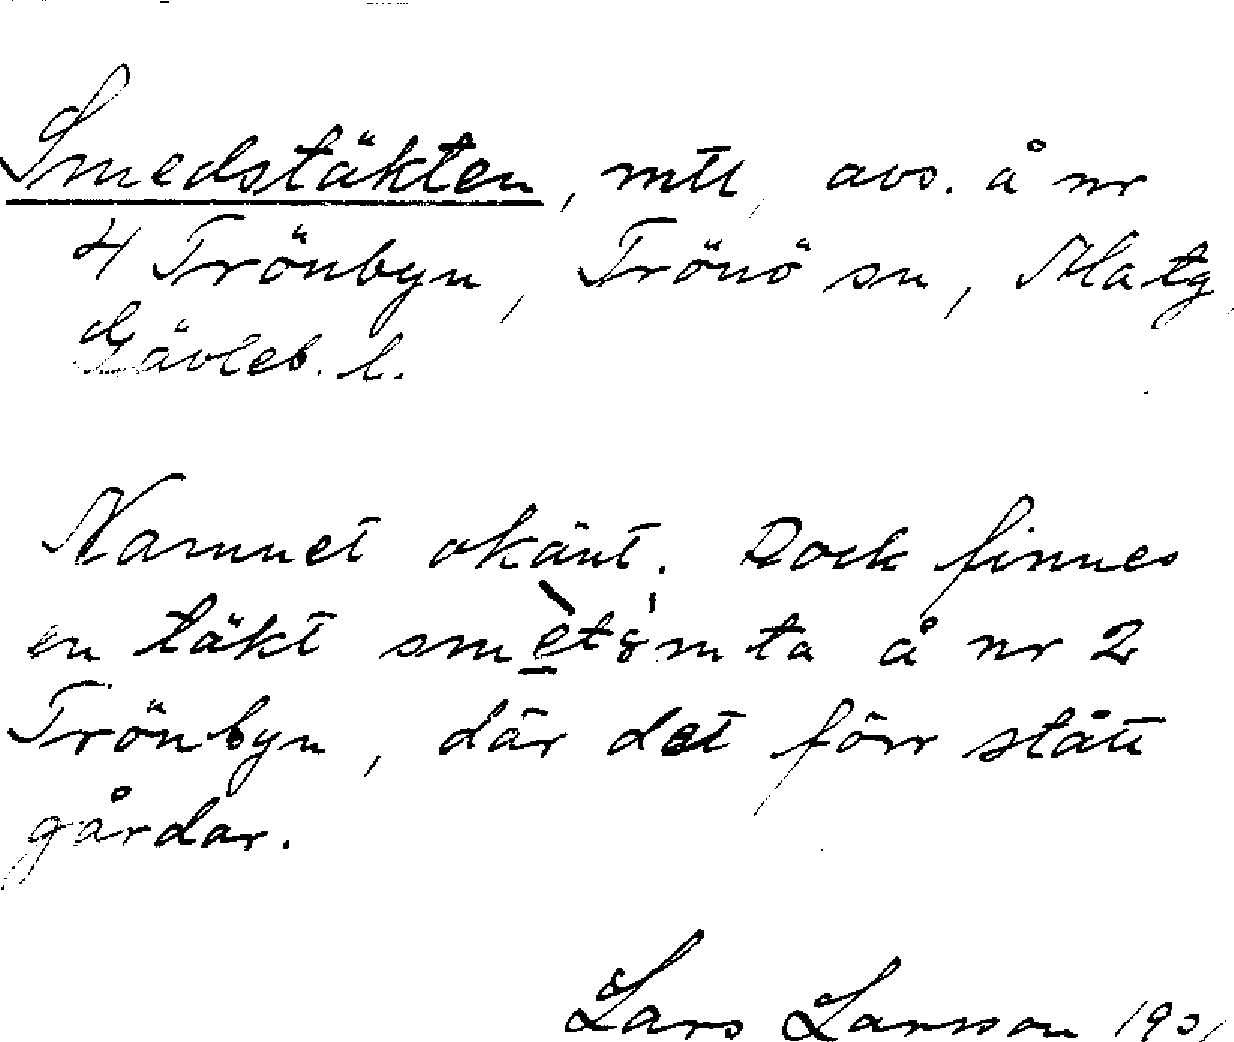 Smedstäkten, mtl, avs. å nr
4 Trönbyn, Trönö sn, Matg,
Gävleb. l.
Namnet okänt. Dock finnes
en täkt å nr 2
Trönbyn, där det förr stått
gårdar.
Lars Larsson